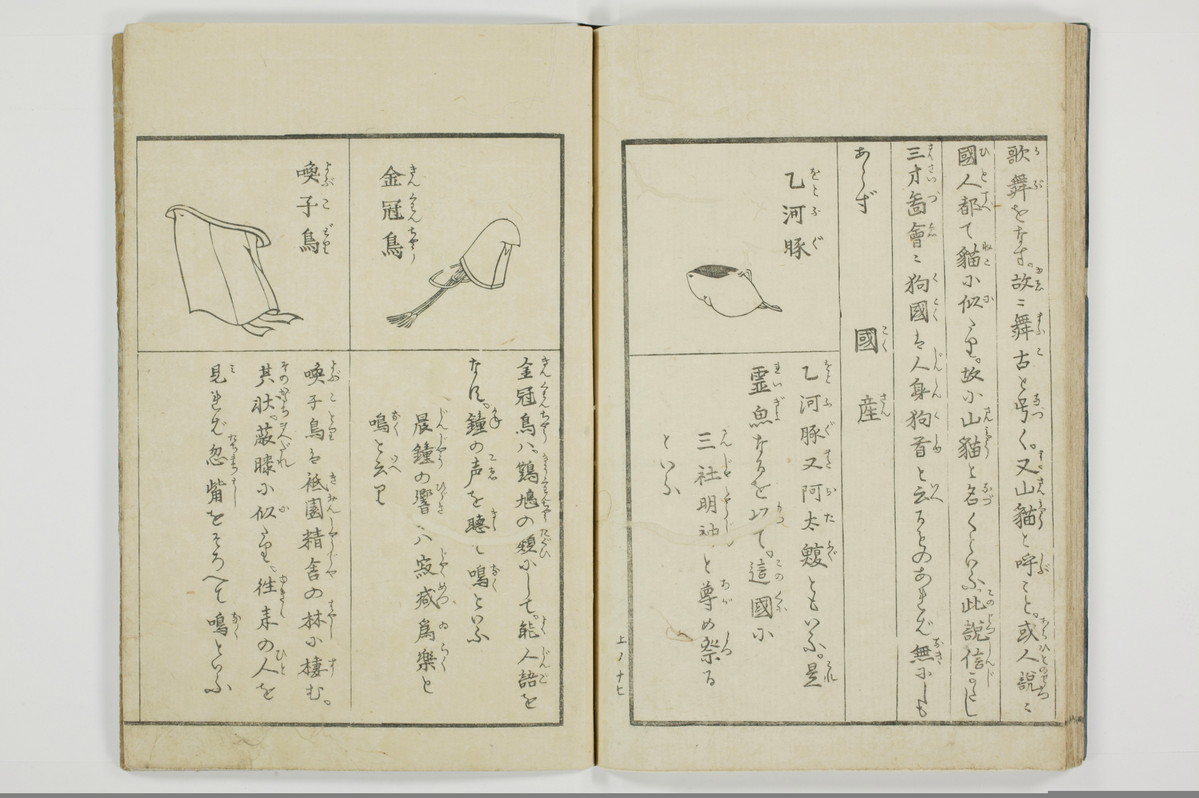 歌舞をなす。故ニ舞古と号く。又山貓と呼こと。或人説ニ
國人都て貓に似たり。故に山貓と名くといふ。此説信じ
三才圖會ニ狗國は人身狗首と云ることのあれば無にしも
あらず
國産
乙河豚
乙河豚又阿太鰒ともいふ。是
霊魚なるを以て。這國に
三社明神と尊め祭る
といふ
上ノ十七
金冠鳥
金冠鳥ハ。鸚鵡の類にして。能人語を
なす。鐘の声を聴て鳴といふ
晨鐘の響ハ寂滅為樂と
鳴と云り
喚子鳥
喚子鳥は祗園精舎の林に棲む。
其状。蔽膝に似たり。往来の人を
見れば忽觜をそろへて鳴といふ